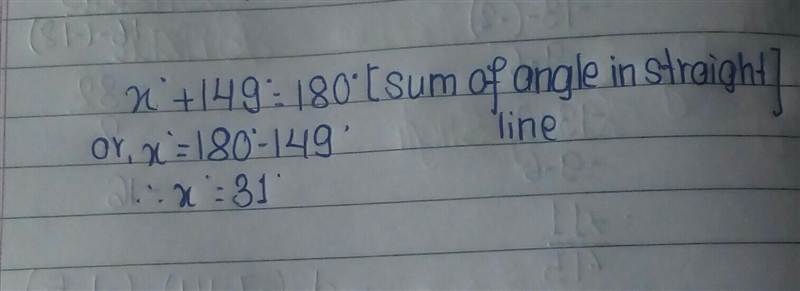 x° + 149° = 180° [sum of angle in straight line]
or, x° = 180° - 149°
∴ x° = 31°